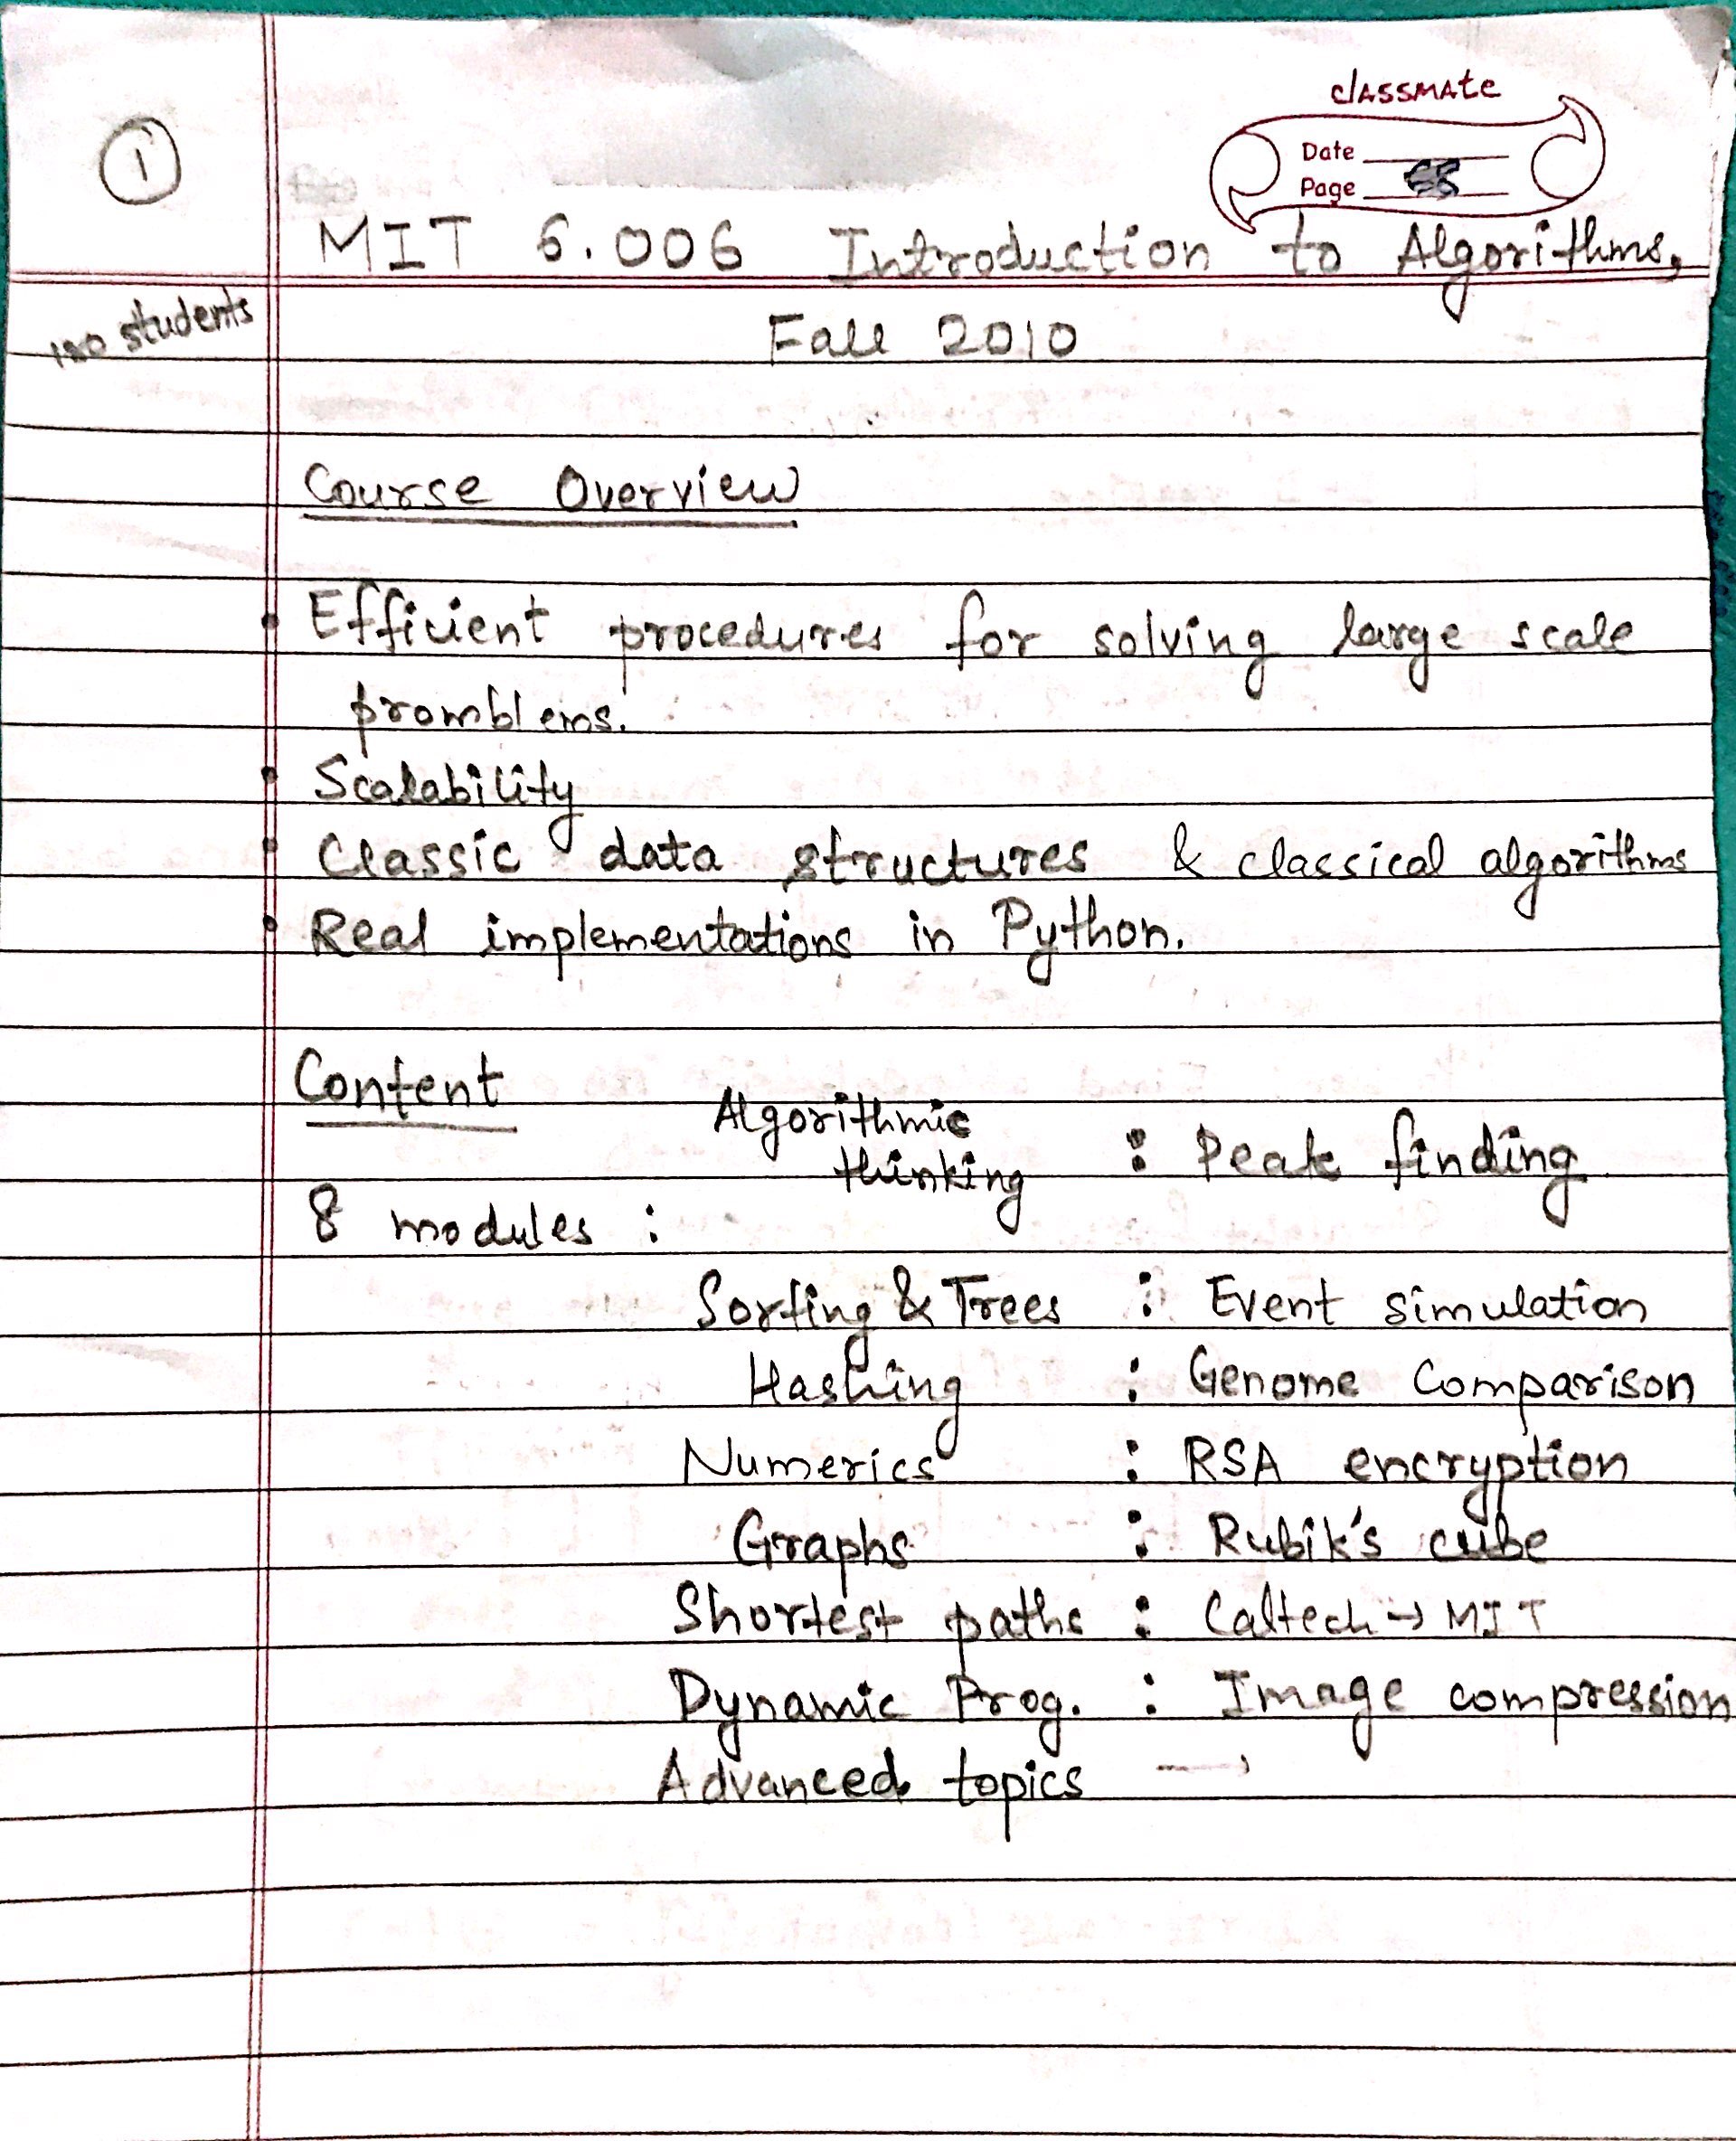 classmate
Date
Page
1
MIT 6.006 Introduction to Algorithms,
students
Fall 2010
Course Overview
• Efficient procedures for solving large scale
promblems.
• Scalability
• Classic data structures & classical algorithms
• Real implementations in Python.
Content
Algorithmic
thinking : Peak finding
8 modules :
Sorting & Trees : Event simulation
Hashing : Genome Comparison
Numerics : RSA encryption
Graphs : Rubik's cube
Shortest paths : Caltech → MIT
Dynamic Prog. : Image compression
Advanced topics